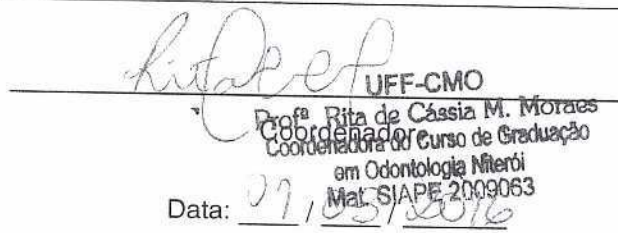 UFF-CMO
Profª Rita de Cássia M. Moraes
Coordenador
Coordenadora do Curso de Graduação
em Odontologia Niterói
Mat. SIAPE 2009063
Data: / 05 / 2016